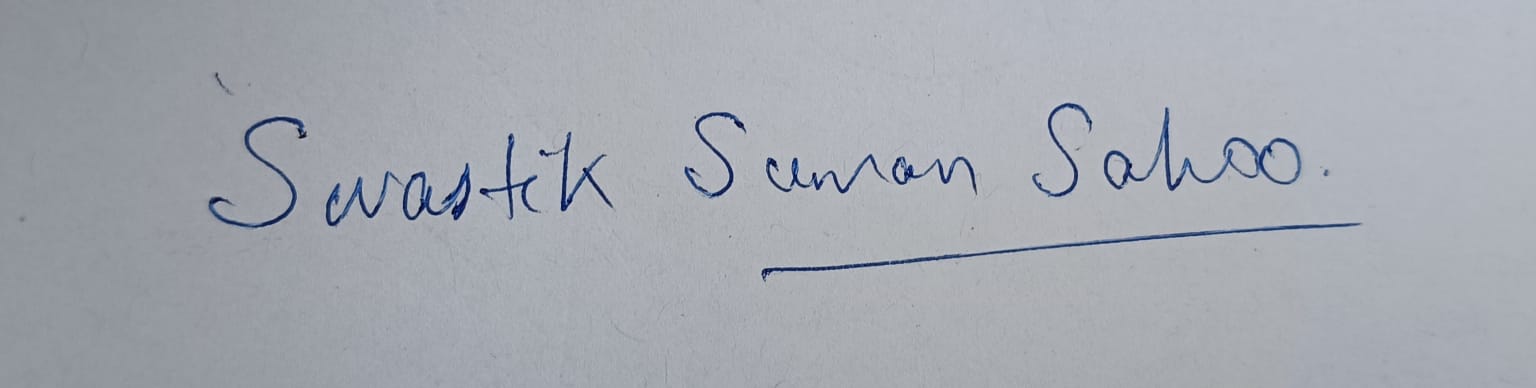 Swastik Suman Sahoo.